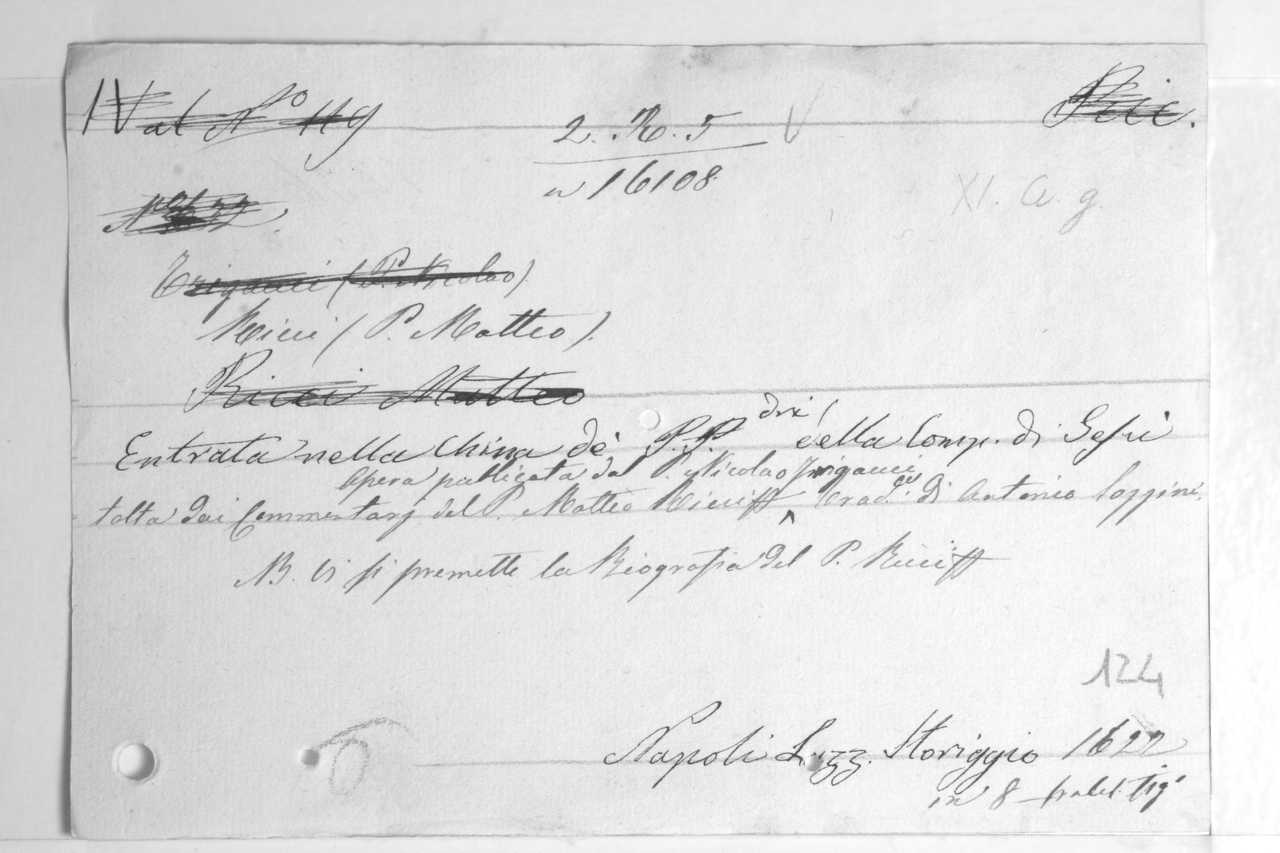 IV al No 119
Ricc.
2. R. 5
n 16108
XI. a. g.
Trigauci (P. Nicolao)
Ricci (P. Matteo).
Ricci Matteo
Entrata nella China de' P.P. della Comp. di Gesù
Opera publicata dal P. Nicolao Trigauci
tolta dai Commentarj del P. Matteo Ricci di Antonio Sozzini.
NB. Vi si premette la Biografia del P. Ricci
124
Napoli Lazz. Scoriggio 1622
in 8